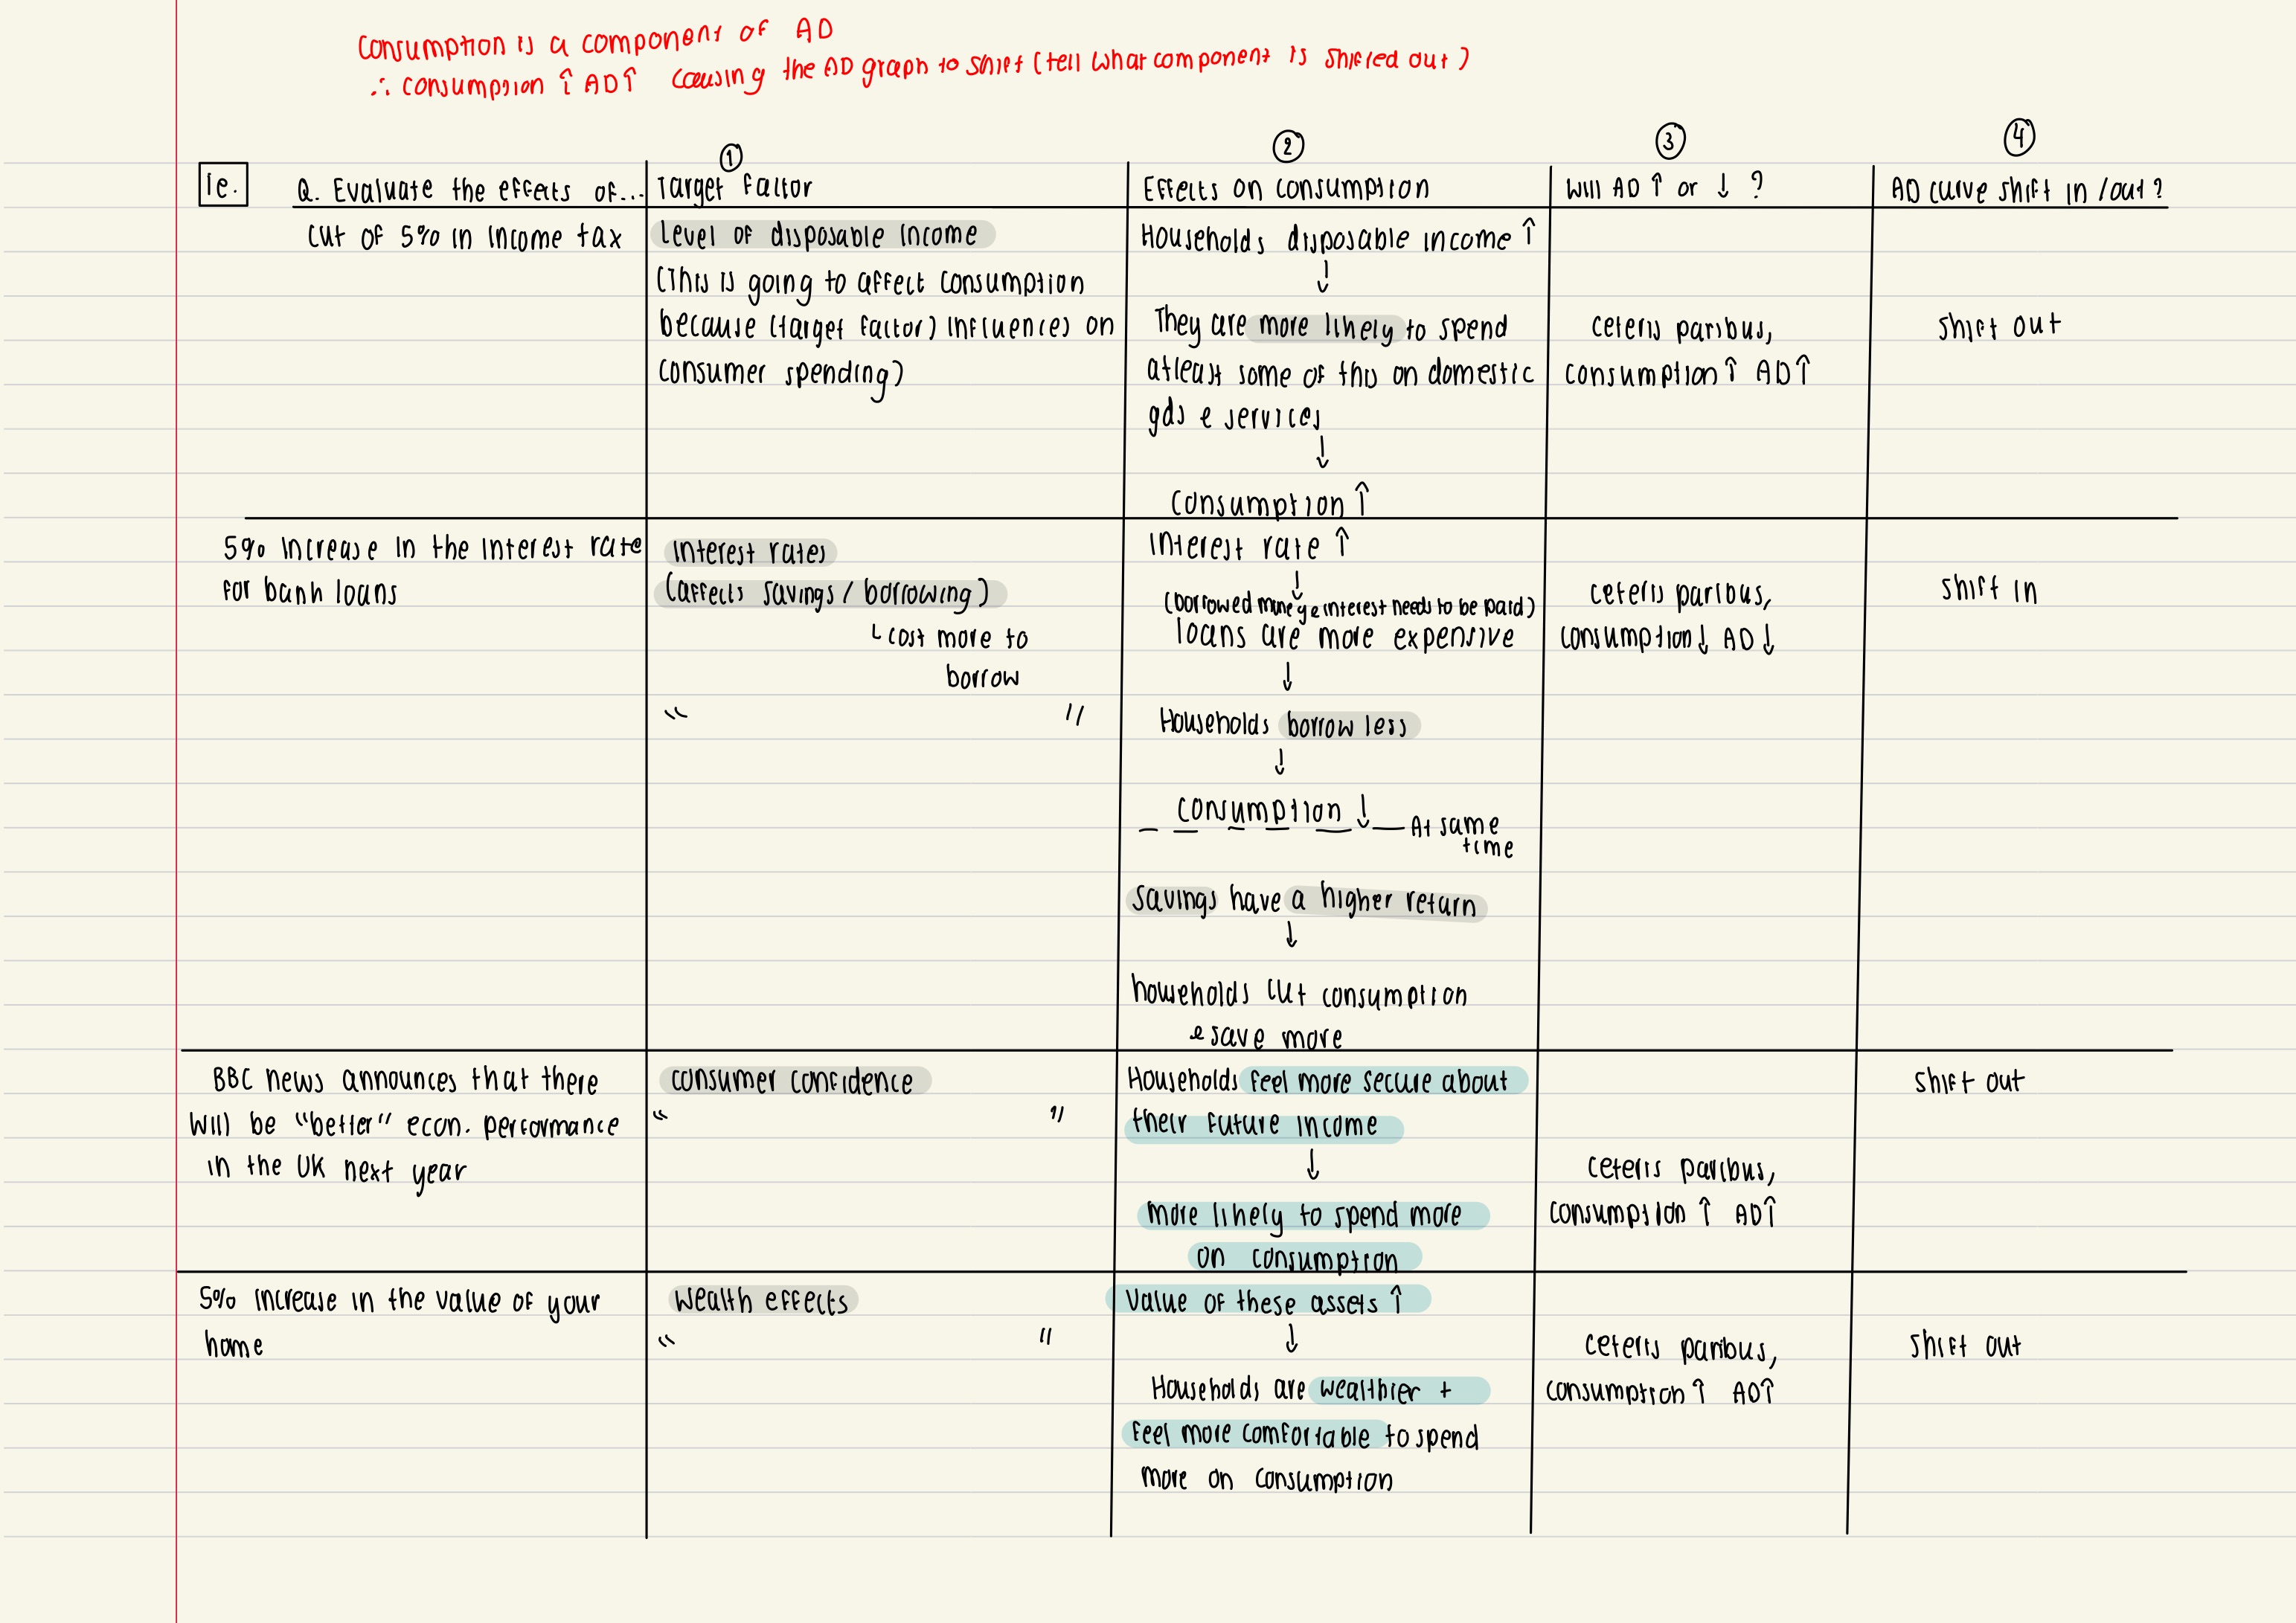 Consumption is a component of AD
∴ consumption ↑ AD↑ causing the AD graph to shift (tell what component is shifted out)
① ② ③ ④
Ie. Q. Evaluate the effects of... Target factor Effects on consumption Will AD ↑ or ↓ ? AD curve shift in /out?
cut of 5% in income tax
Level of disposable income
(This is going to affect consumption
because (target factor) influences on
consumer spending)
Households disposable income ↑
↓
They are more likely to spend
atleast some of this on domestic
gds & services
↓
Consumption ↑
ceteris paribus,
consumption ↑ AD↑
shift out
5% increase in the interest rate
for bank loans
Interest rates
(affects savings / borrowing)
↳ cost more to
borrow
" "
Interest rate ↑
↓
(borrowed money & interest needs to be paid)
loans are more expensive
↓
Households borrow less
↓
Consumption ↓
At same
time
Savings have a higher return
↓
households cut consumption
& save more
ceteris paribus,
consumption↓ AD↓
shift in
BBC news announces that there
will be "better" econ. performance
in the UK next year
consumer confidence
" "
Households feel more secure about
their future income
↓
more likely to spend more
on consumption
ceteris paribus,
consumption ↑ AD↑
shift out
5% increase in the value of your
home
Wealth effects
" "
Value of these assets ↑
↓
Households are wealthier +
feel more comfortable to spend
more on consumption
ceteris paribus,
consumption ↑ AD↑
shift out